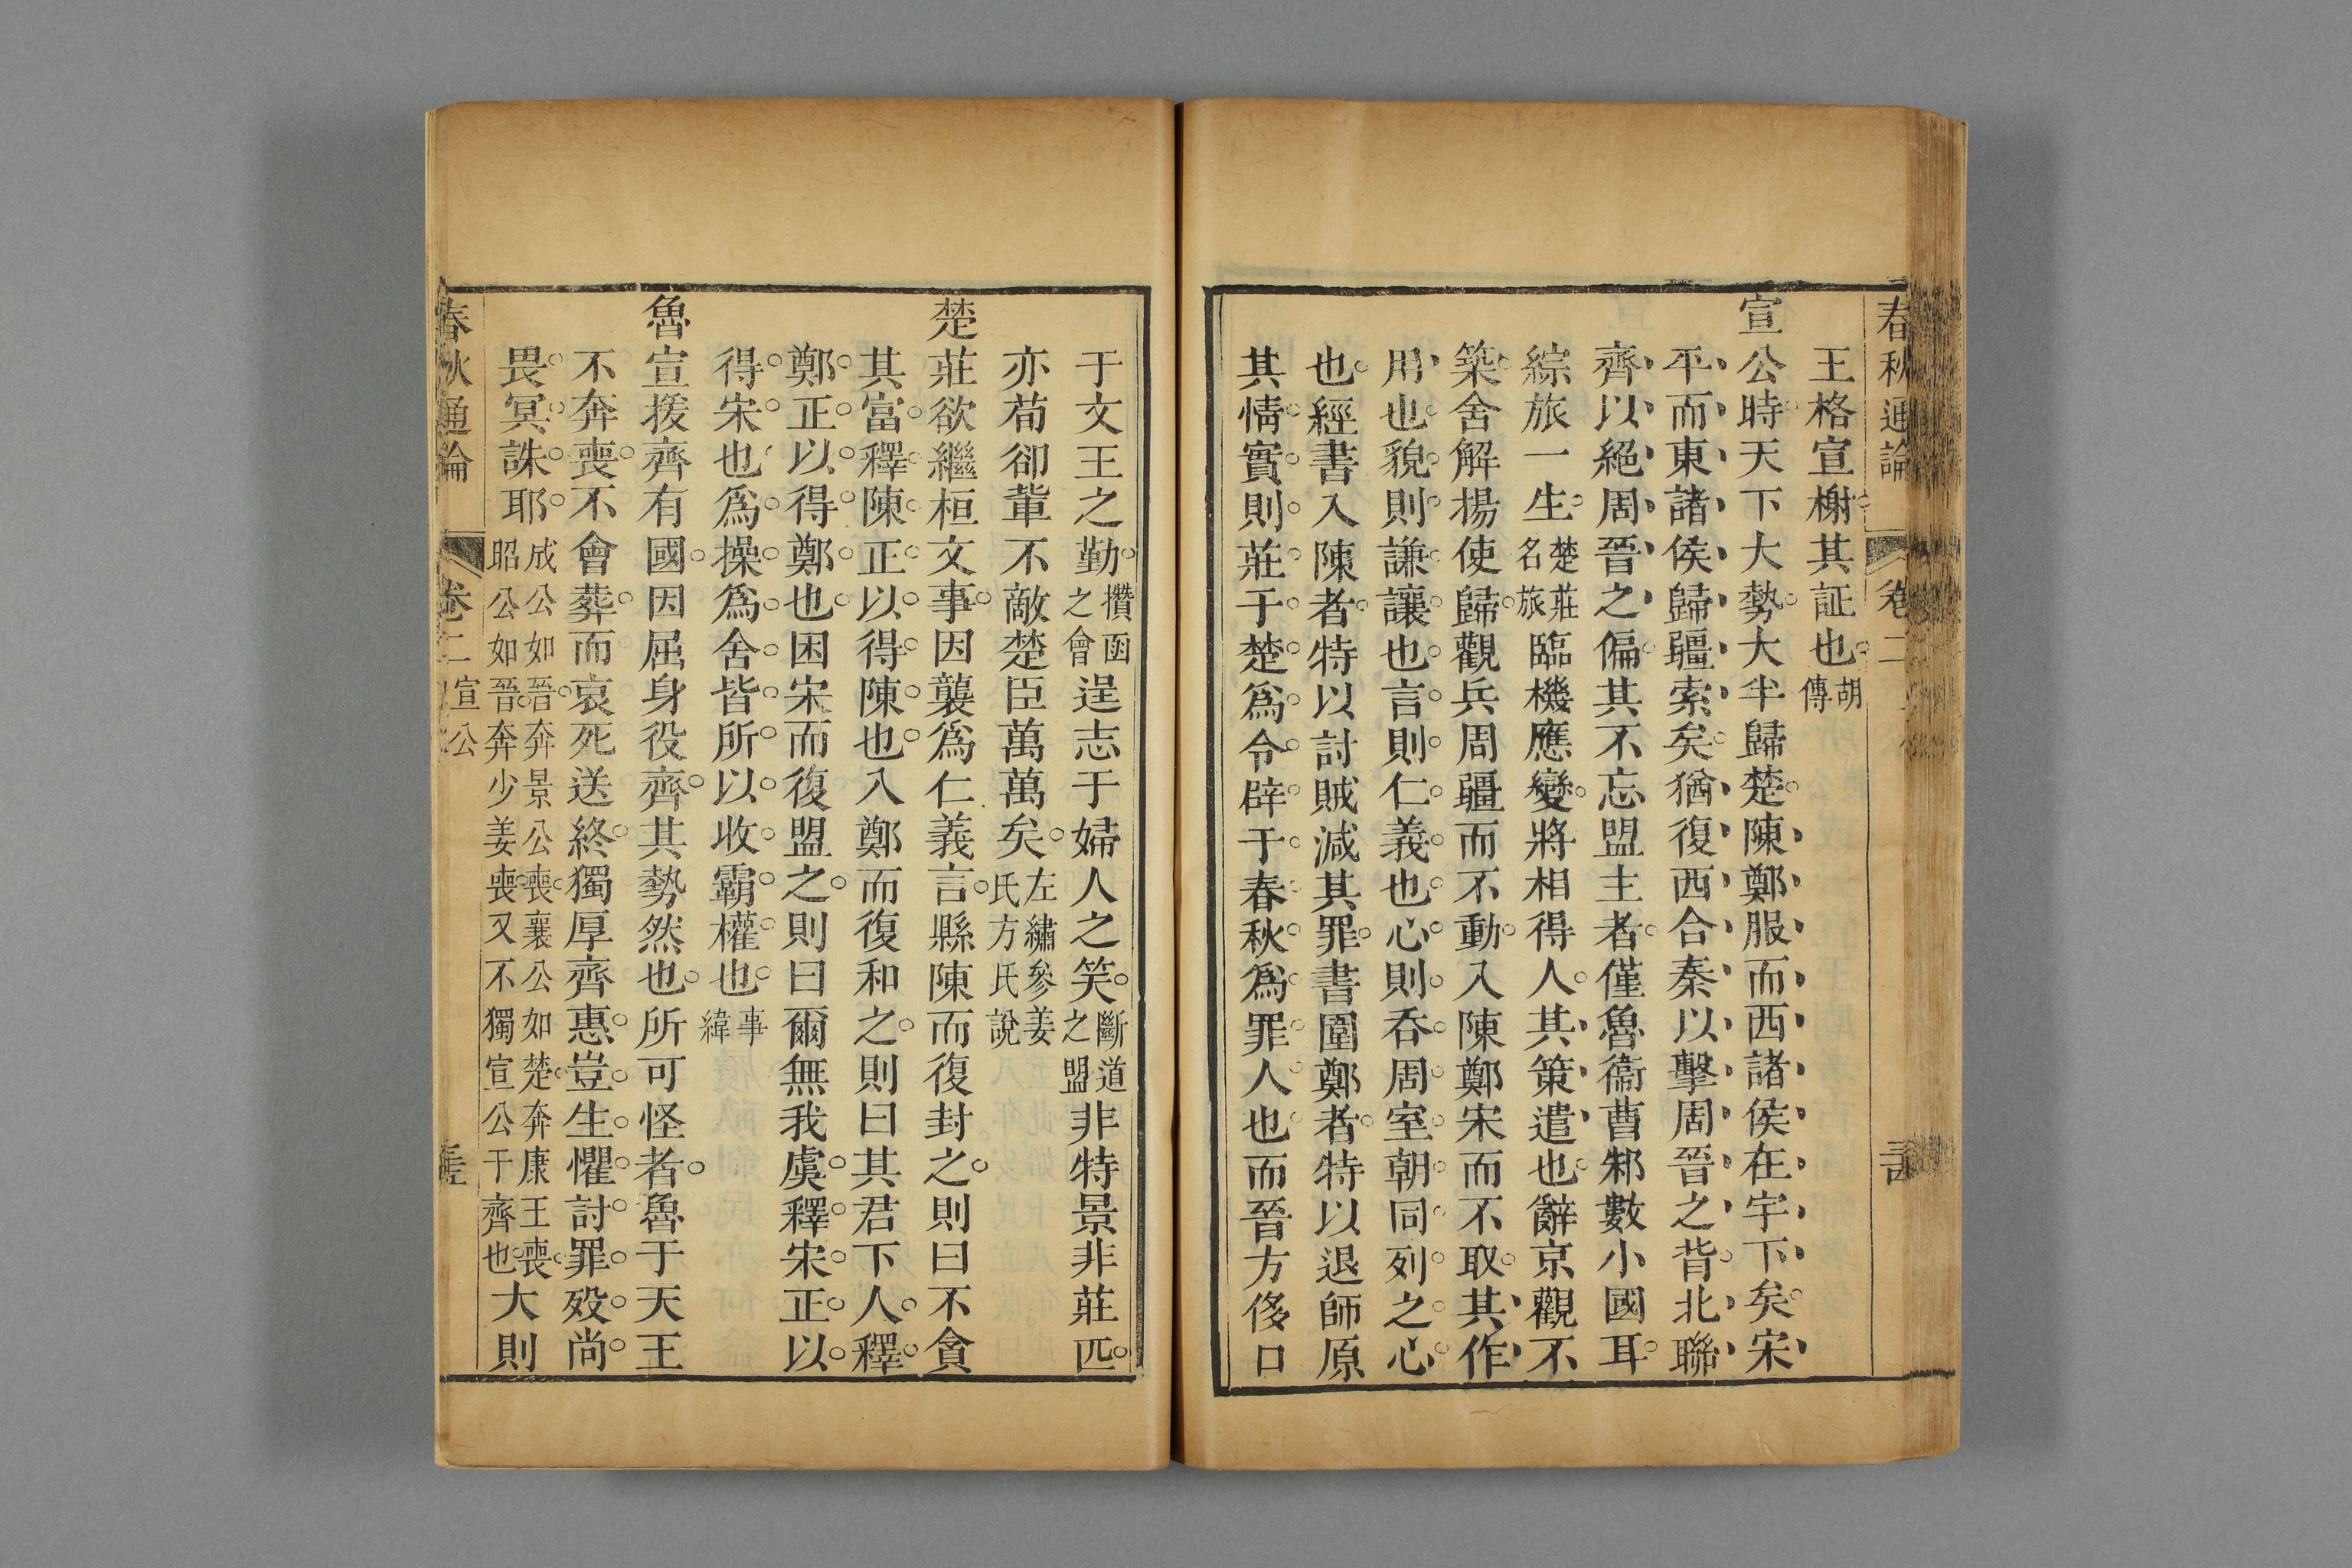 春秋通論 卷二
王格宣榭其証也胡傳
宣公時天下大勢大半歸楚陳鄭服而西諸侯在宇下矣宋
平而東諸侯歸疆索矣猶復西合秦以擊周晉之背北聯
齊以絕周晉之偏其不忘盟主者僅魯衞曹邾數小國耳
綜旅一生楚莊名旅臨機應變將相得人其策遣也辭京觀不
築舍解揚使歸觀兵周疆而不動入陳鄭宋而不取其作
用也貌則謙讓也言則仁義也心則吞周室朝同列之心
也經書入陳者特以討賊減其罪書圍鄭者特以退師原
其情實則莊于楚爲令辟于春秋爲罪人也而晉方侈口
于文王之勤攢函之會逞志于婦人之笑斷道之盟非特景非莊匹
亦荀卻輩不敵楚臣萬萬矣左繡參姜氏方氏說
楚莊欲繼桓文事因襲爲仁義言縣陳而復封之則曰不貪
其富釋陳正以得陳也入鄭而復和之則曰其君下人釋
鄭正以得鄭也困宋而復盟之則曰爾無我虞釋宋正以
得宋也爲操爲舍皆所以收霸權也事緯
魯宣援齊有國因屈身役齊其勢然也所可怪者魯于天王
不奔喪不會葬而哀死送終獨厚齊惠豈生懼討罪歿尚
畏冥誅耶成公如晉奔景公喪襄公如楚奔康王喪昭公如晉奔少姜喪又不獨宣公于齊也大則
春秋通論 卷二 宣公